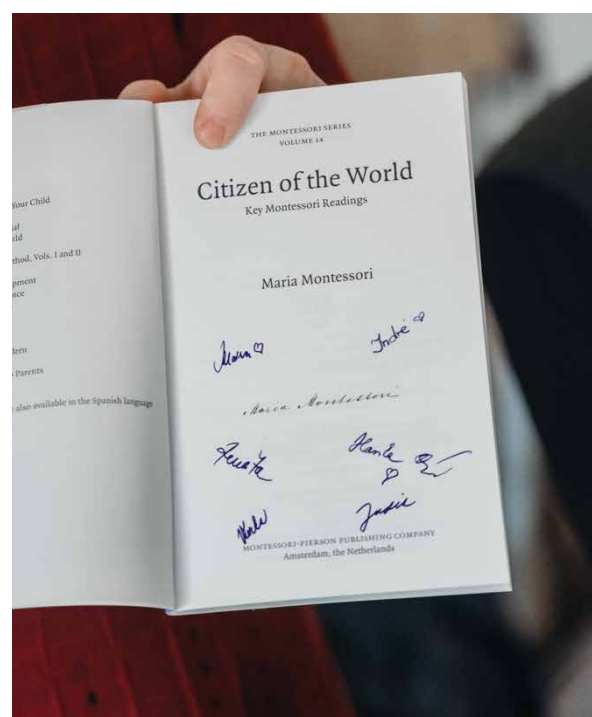 Your Child
thod, Vols. I and II
also available in the Spanish language
Parents
THE MONTESSORI SERIES
VOLUME 14
Citizen of the World
Key Montessori Readings
Maria Montessori
Indrė
Maria Montessori
Renata
MONTESSORI-PIERSON PUBLISHING COMPANY
Amsterdam, the Netherlands